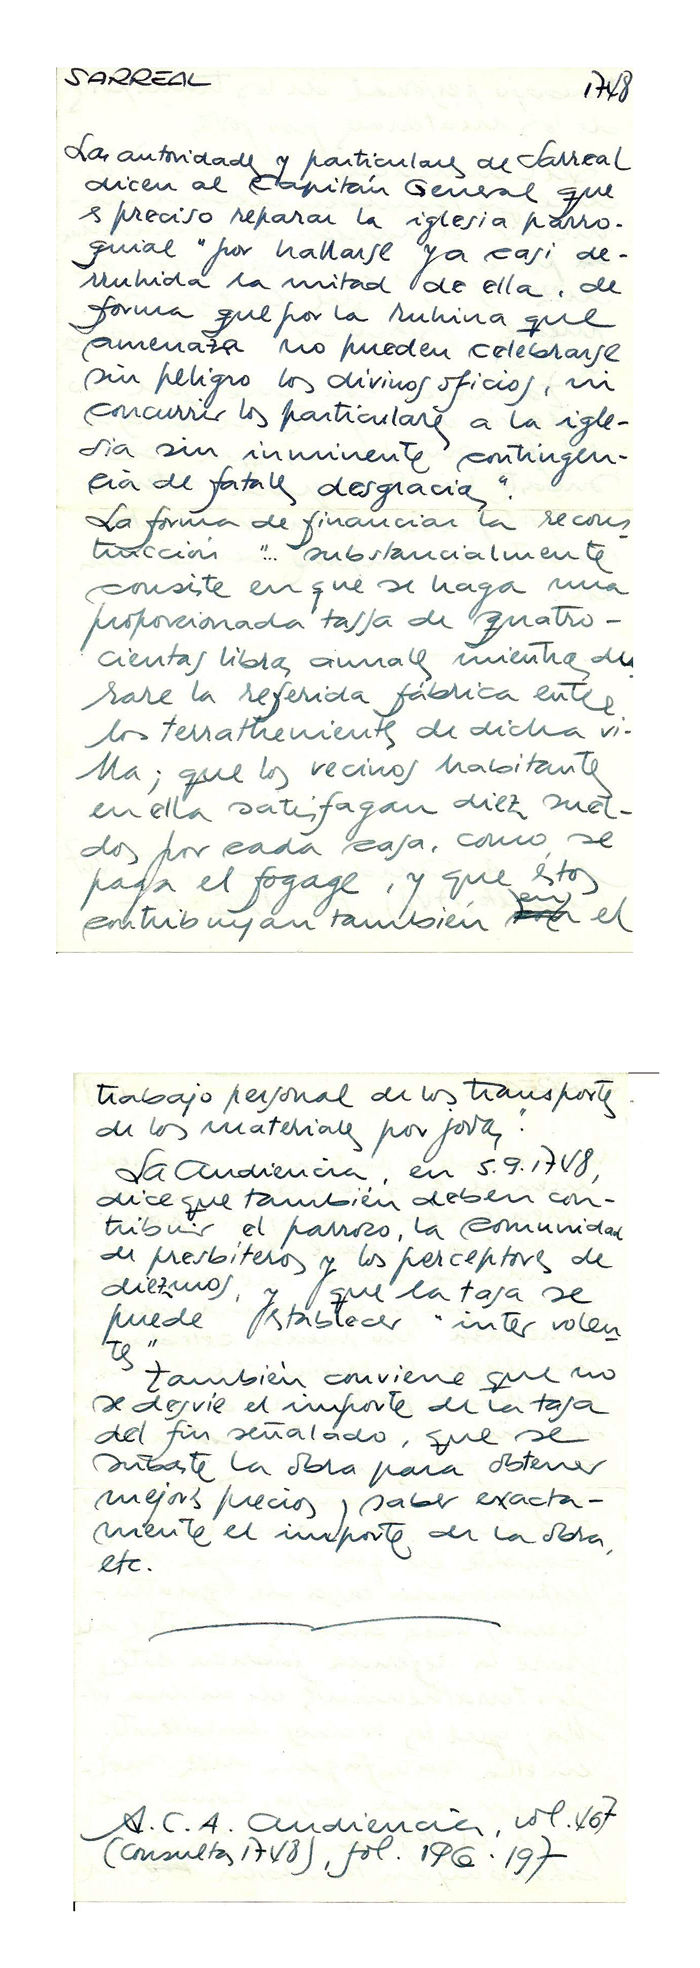 SARREAL 1748
Las autoridades y particulares de Sarreal
dicen al Capitán General que
es preciso reparar la iglesia parro-
quial "por hallarse ya casi de-
rruhida la mitad de ella, de
forma que por la ruhina que
amenaza no pueden celebrarse
sin peligro los divinos oficios, ni
concurrir los particulares a la igle-
sia sin inminente contingen-
cia de fatales desgracias".
La forma de financiar la recons
trucción "... substancialmente
consiste en que se haga una
proporcionada tassa de quatro-
cientas libras annales mientras du
rare la referida fábrica entre
los terrathenientes de dicha vi-
lla; que los vecinos habitantes
en ella satisfagan diez suel-
dos por cada casa, como se
paga el fogage, y que éstos
contribuyan también en el
trabajo personal de los transportes
de los materiales por jovas".
La Audiencia, en 5.9.1748,
dice que también deben con-
tribuir el párroco, la comunidad
de presbíteros y los perceptores de
diezmos, y que la tasa se
puede establecer "inter volen
tes"
También conviene que no
se desvíe el importe de la tasa
del fin señalado, que se
subaste la obra para obtener
mejores precios y saber exacta-
mente el importe de la obra,
etc.
A.C.A. Audiencia, vol. 467
(Consultas 1748), fol. 196-197